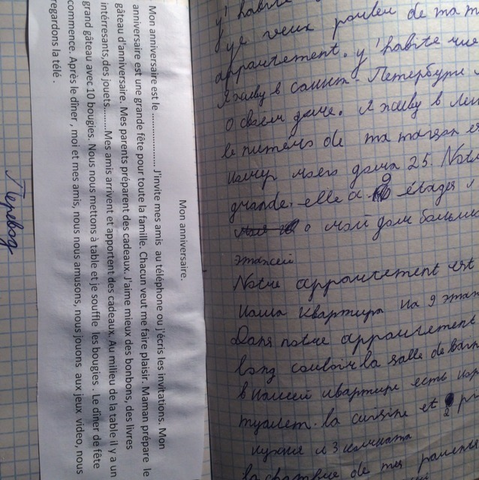 Mon anniversaire.
Mon anniversaire est le ........................ J'invite mes amis au téléphone ou j'écris les invitations. Mon
anniversaire est une grande fête pour toute la famille. Chacun veut me faire plaisir. Maman prépare le
gâteau d'anniversaire. Mes parents préparent des cadeaux. J'aime mieux des bonbons, des livres
intérresants,des jouets........Mes amis arrivent et apportent des cadeaux. Au milieu de la table il y a un
grand gâteau avec 10 bougies. Nous nous mettons à table et je souffle les bougies . Le dîner de fête
commence. Après le dîner , moi et mes amis, nous nous amusons, nous jouons aux jeux video, nous
regardons la télé .
Перевод
y' habite
je veux parler de ma m
appartement. y' habite
Я живу в Санкт Петербург
о своём доме. Я живу в
le numéro de ma maison es
номер моего дома 25. Notre
grande. elle a 9 étages
о мой дом
этажей
Notre appartement est
наша квартира на 9 этаж
Dans notre appartement
long couloir la salle de bain
в нашей квартире есть
туалет. la cuisine et
кухня и 3 комнаты
la chambre de mes parents